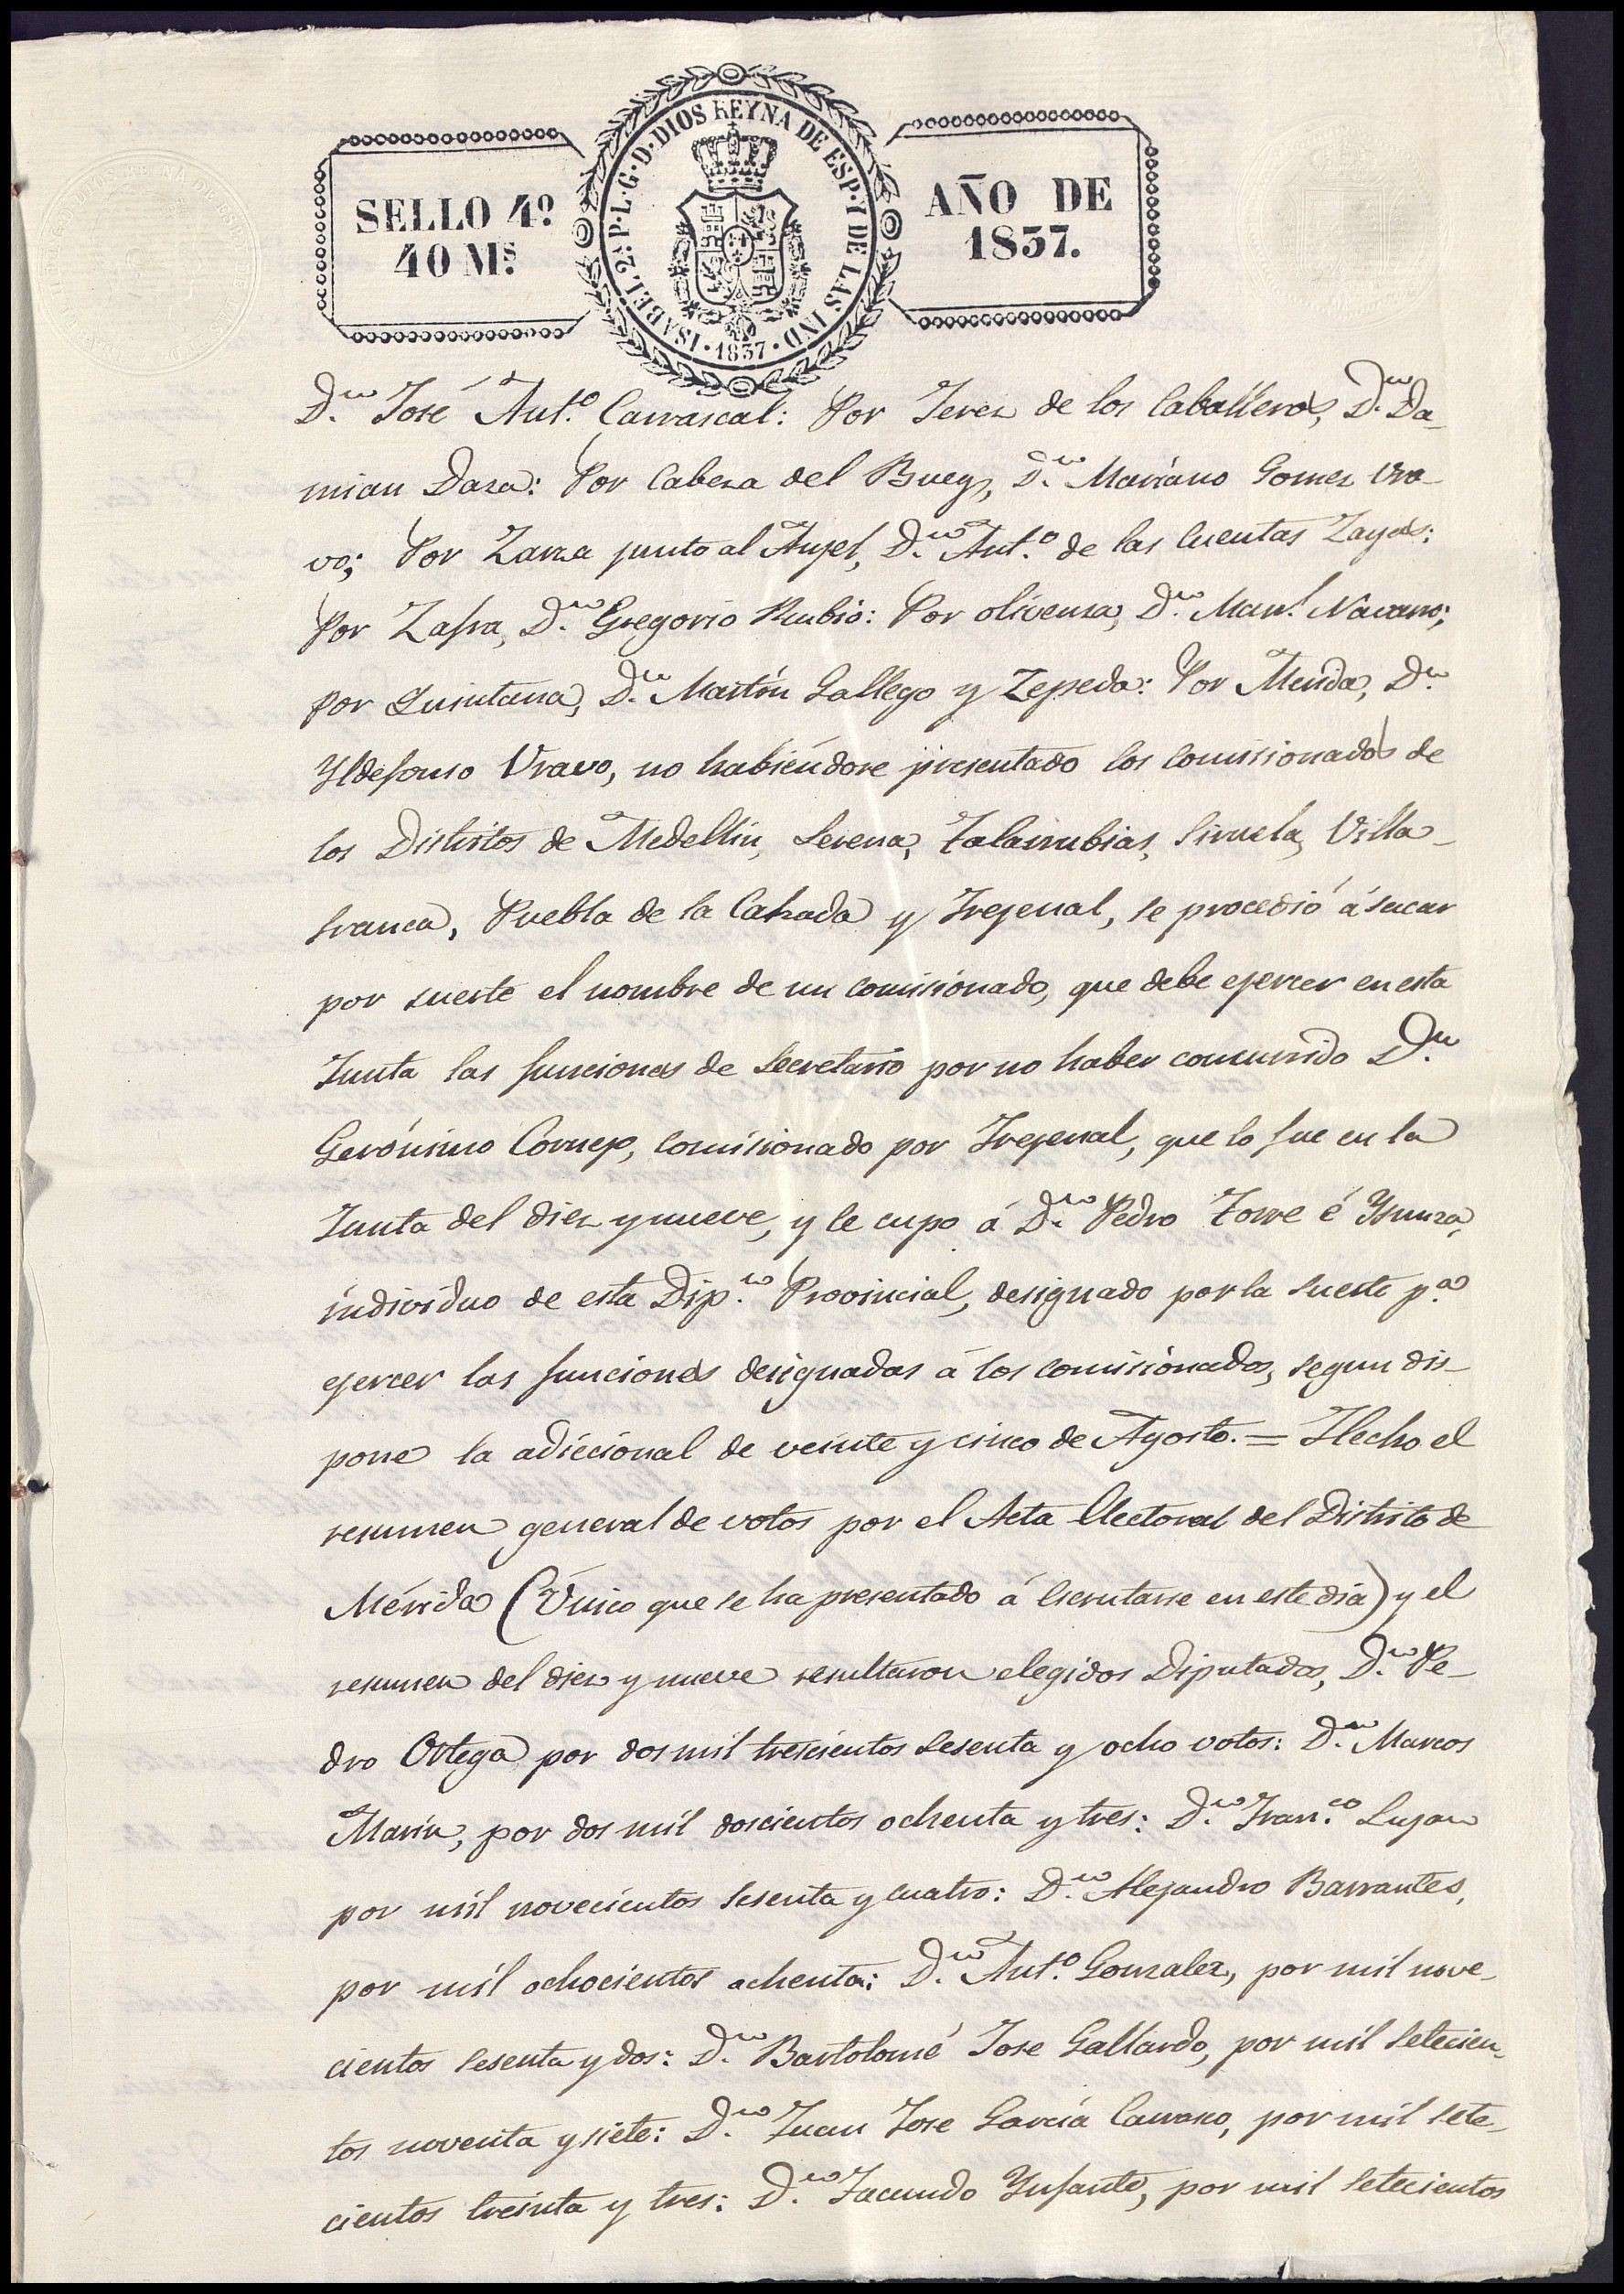 SELLO 4º
40 Mˢ.
ISABEL 2ª P. L. G. D. DIOS REYNA DE ESP. Y DE LAS IND.
· 1837 ·
AÑO DE
1837.
D.ⁿ José Ant.º Carrascal: Por Jerez de los Caballeros, D.ⁿ Da-
mian Daza: Por Cabeza del Buey, D.ⁿ Mariano Gomez Vra-
vo; Por Zarza junto al Anjel, D.ⁿ Ant.º de las Cuentas Zayas:
Por Zafra, D.ⁿ Gregorio Rubio: Por olivenza, D.ⁿ Man.l Navarro;
por Quintana, D.ⁿ Martín Gallego y Zepeda: Por Merida, D.ⁿ
Yldefonso Vravo, no habiéndose presentado los comisionados de
los Distritos de Medellin, Serena, Talarrubias, Siruela, Villa-
franca, Puebla de la Calzada y Frejenal, se procedió á sacar
por suerte el nombre de un comisionado, que debe ejercer en esta
Junta las funciones de Secretario por no haber concurrido D.ⁿ
Gerónimo Cornejo, comisionado por Frejenal, que lo fue en la
Junta del diez y nueve, y le cupo á D.ⁿ Pedro Torre é Ysunza,
individuo de esta Dip.ⁿ Provincial, designado por la suerte p.ª
ejercer las funciones designadas á los comisionados, segun dis-
pone la adiccional de veinte y cinco de Agosto. = Hecho el
resumen general de votos por el Acta Electoral del Distrito de
Mérida (Único que se ha presentado á Escrutarse en este día) y el
resumen del diez y nueve resultaron elegidos Diputados, D.ⁿ Pe-
dro Ortega por dos mil trescientos sesenta y ocho votos: D.ⁿ Marcos
Marin, por dos mil doscientos ochenta y tres: D.ⁿ Fran.co Lujan
por mil novecientos sesenta y cuatro: D.ⁿ Alejandro Barrantes,
por mil ochocientos ochenta: D.ⁿ Ant.º Gonzalez, por mil nove-
cientos sesenta y dos: D.ⁿ Bartolomé Jose Gallardo, por mil setecien-
tos noventa y siete: D.ⁿ Juan Jose García Carrasco, por mil sete-
cientos treinta y tres: D.ⁿ Facundo Ynfante, por mil setecientos